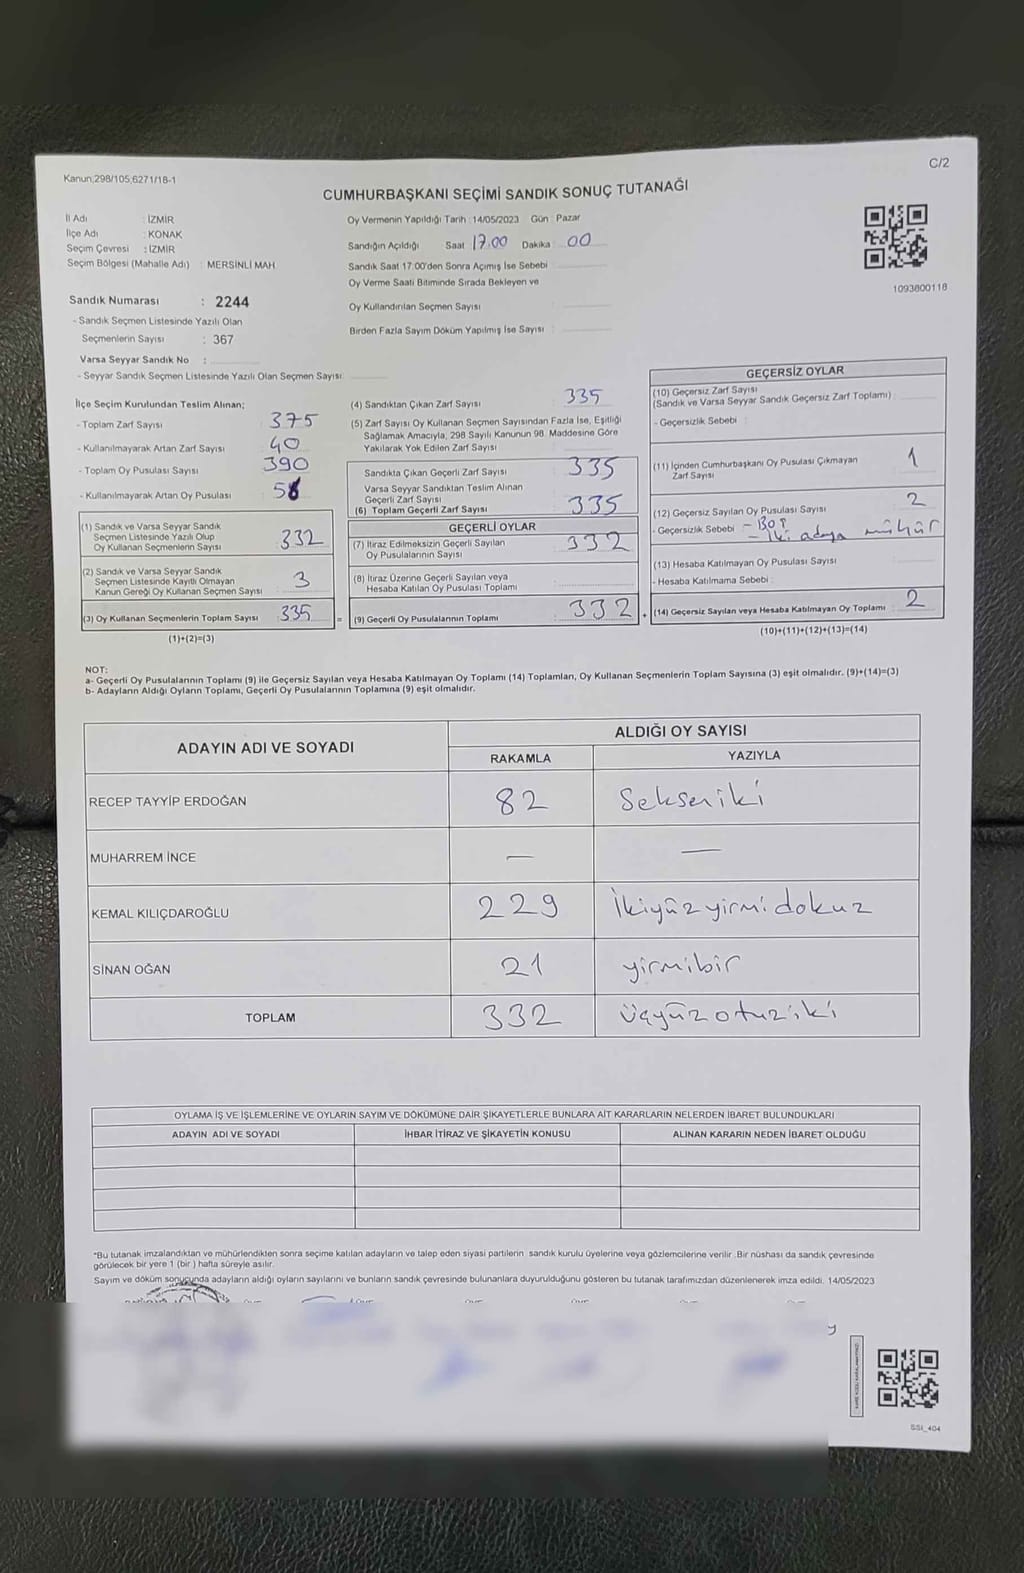 C/2
Kanun;298/105,6271/18-1
CUMHURBAŞKANI SEÇİMİ SANDIK SONUÇ TUTANAĞI
İl Adı : İZMİR
İlçe Adı : KONAK
Seçim Çevresi : İZMİR
Seçim Bölgesi (Mahalle Adı) : MERSİNLİ MAH.
Sandık Numarası : 2244
- Sandık Seçmen Listesinde Yazılı Olan
Seçmenlerin Sayısı : 367
Varsa Seyyar Sandık No :
- Seyyar Sandık Seçmen Listesinde Yazılı Olan Seçmen Sayısı:
Oy Vermenin Yapıldığı Tarih : 14/05/2023 Gün : Pazar
Sandığın Açıldığı Saat 17:00 Dakika : 00
Sandık Saat 17:00'den Sonra Açımış İse Sebebi :
Oy Verme Saati Bitiminde Sırada Bekleyen ve
Oy Kullandırılan Seçmen Sayısı :
Birden Fazla Sayım Döküm Yapılmış İse Sayısı :
1093800118
İlçe Seçim Kurulundan Teslim Alınan;
- Toplam Zarf Sayısı : 375
- Kullanılmayarak Artan Zarf Sayısı : 40
- Toplam Oy Pusulası Sayısı : 390
- Kullanılmayarak Artan Oy Pusulası :
(1) Sandık ve Varsa Seyyar Sandık
Seçmen Listesinde Yazılı Olup
Oy Kullanan Seçmenlerin Sayısı : 332
(2) Sandık ve Varsa Seyyar Sandık
Seçmen Listesinde Kayıtlı Olmayan
Kanun Gereği Oy Kullanan Seçmen Sayısı : 3
(3) Oy Kullanan Seçmenlerin Toplam Sayısı : 335
(1)+(2)=(3)
(4) Sandıktan Çıkan Zarf Sayısı : 335
(5) Zarf Sayısı Oy Kullanan Seçmen Sayısından Fazla İse, Eşitliği
Sağlamak Amacıyla, 298 Sayılı Kanunun 98. Maddesine Göre
Yakılarak Yok Edilen Zarf Sayısı :
Sandıkta Çıkan Geçerli Zarf Sayısı : 335
Varsa Seyyar Sandıktan Teslim Alınan
Geçerli Zarf Sayısı :
(6) Toplam Geçerli Zarf Sayısı : 335
GEÇERLİ OYLAR
(7) İtiraz Edilmeksizin Geçerli Sayılan
Oy Pusulalarının Sayısı : 332
(8) İtiraz Üzerine Geçerli Sayılan veya
Hesaba Katılan Oy Pusulası Toplamı :
= (9) Geçerli Oy Pusulalarının Toplamı : 332 +
GEÇERSİZ OYLAR
(10) Geçersiz Zarf Sayısı
(Sandık ve Varsa Seyyar Sandık Geçersiz Zarf Toplamı) :
- Geçersizlik Sebebi :
(11) İçinden Cumhurbaşkanı Oy Pusulası Çıkmayan
Zarf Sayısı : 1
(12) Geçersiz Sayılan Oy Pusulası Sayısı : 2
- Geçersizlik Sebebi : - Boş
- İki adaya mühür
(13) Hesaba Katılmayan Oy Pusulası Sayısı :
- Hesaba Katılmama Sebebi :
(14) Geçersiz Sayılan veya Hesaba Katılmayan Oy Toplamı : 2
(10)+(11)+(12)+(13)=(14)
NOT:
a- Geçerli Oy Pusulalarının Toplamı (9) ile Geçersiz Sayılan veya Hesaba Katılmayan Oy Toplamı (14) Toplamları, Oy Kullanan Seçmenlerin Toplam Sayısına (3) eşit olmalıdır. (9)+(14)=(3)
b- Adayların Aldığı Oyların Toplamı, Geçerli Oy Pusulalarının Toplamına (9) eşit olmalıdır.
ADAYIN ADI VE SOYADI ALDIĞI OY SAYISI
RAKAMLA YAZIYLA
RECEP TAYYİP ERDOĞAN 82 Seksen iki
MUHARREM İNCE — —
KEMAL KILIÇDAROĞLU 229 İkiyüz yirmi dokuz
SİNAN OĞAN 21 yirmibir
TOPLAM 332 üçyüz otuz iki
OYLAMA İŞ VE İŞLEMLERİNE VE OYLARIN SAYIM VE DÖKÜMÜNE DAİR ŞİKAYETLERLE BUNLARA AİT KARARLARIN NELERDEN İBARET BULUNDUKLARI
ADAYIN ADI VE SOYADI İHBAR İTİRAZ VE ŞİKAYETİN KONUSU ALINAN KARARIN NEDEN İBARET OLDUĞU
*Bu tutanak imzalandıktan ve mühürlendikten sonra seçime katılan adayların ve talep eden siyasi partilerin sandık kurulu üyelerine veya gözlemcilerine verilir .Bir nüshası da sandık çevresinde
görülecek bir yere 1 (bir ) hafta süreyle asılır.
Sayım ve döküm sonucunda adayların aldığı oyların sayılarını ve bunların sandık çevresinde bulunanlara duyurulduğunu gösteren bu tutanak tarafımızdan düzenlenerek imza edildi. 14/05/2023
SSI_404